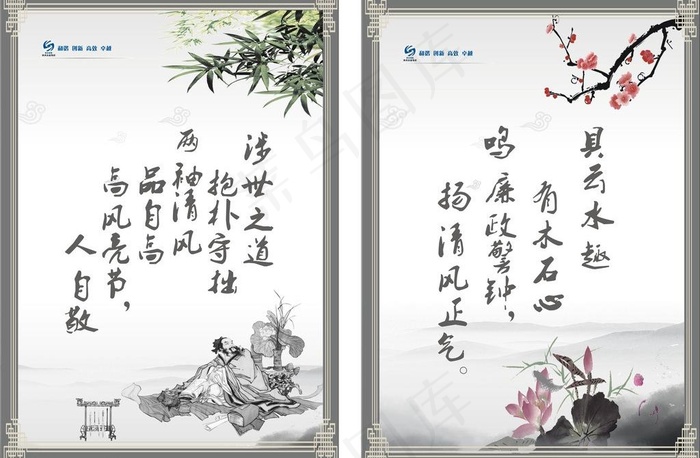 和谐 创新 高效 卓越
涉世之道
抱朴守拙
两袖清风
品自高
高风亮节，
人自敬
和谐 创新 高效 卓越
具云水趣
有木石心
鸣廉政警钟，
扬清风正气。